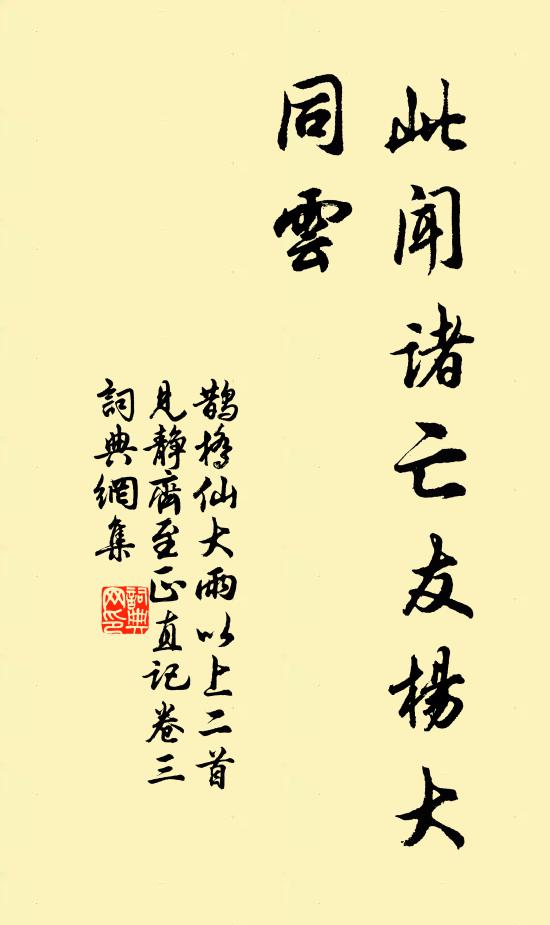 此聞諸亡友楊大
同雲
鵲橋仙大雨以上二首
見靜齋至正直記卷三
詞典網集
詞典
网印